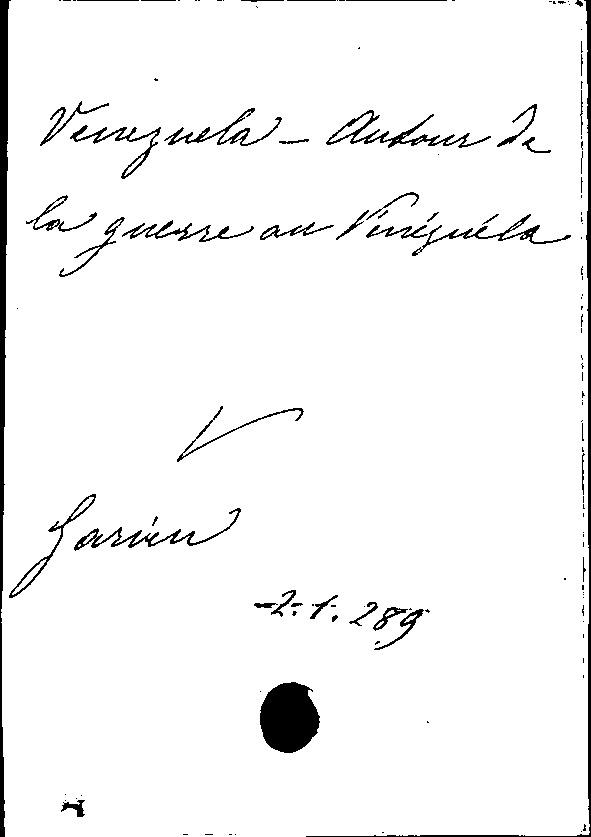 Venezuela – Autour de
la guerre au Vénézuéla
V
Garien
-2.-1. 289